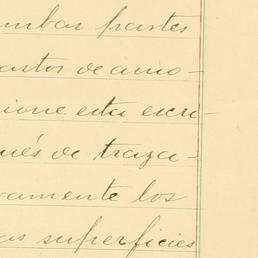 ambas partes
astos de amo-
ione esta escri-
ués de traza-
vamente los
as superficies